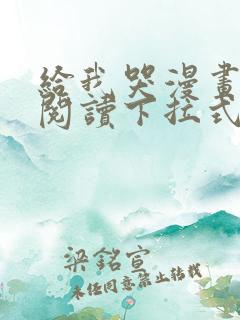 給我哭漫畫
閱讀下拉式
梁銘宣
未任同意禁止转载